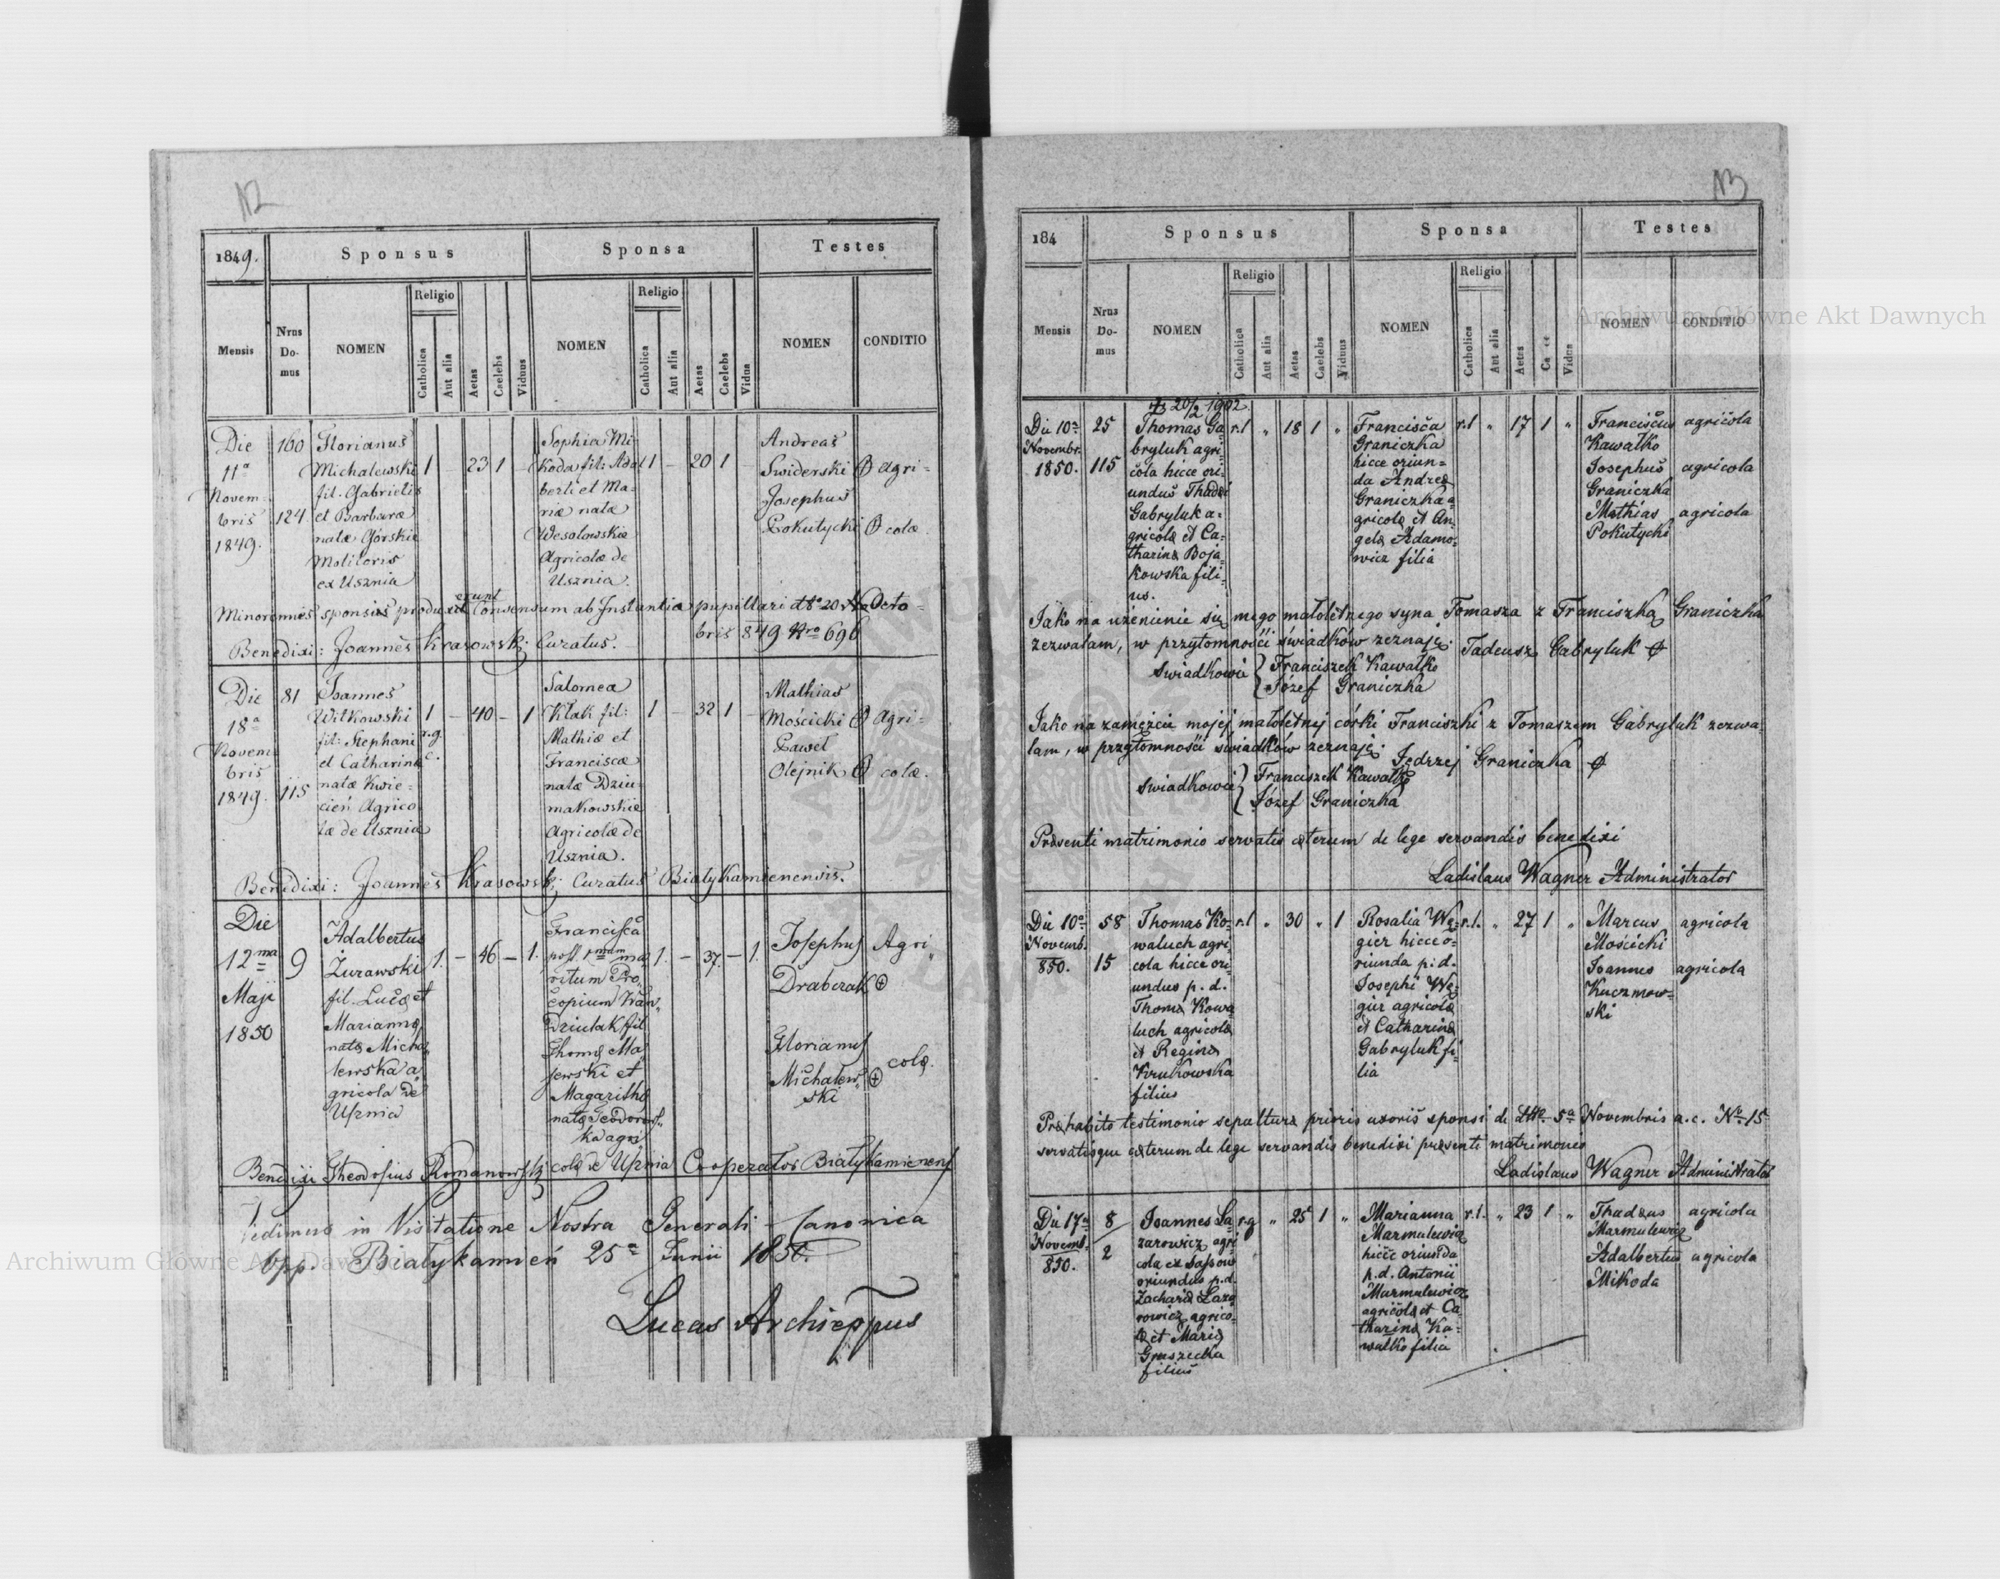 12
1849.
Sponsus
Sponsa
Testes
Mensis
Nrus Do- mus
NOMEN
Religio
Catholica
Aut alia
Aetas
Caelebs
Viduus
NOMEN
Religio
Catholica
Aut alia
Aetas
Caelebs
Vidua
NOMEN
CONDITIO
Die
11ª
Novem-
bris
1849.
160
124
Florianus
Michalewski
fil. Gabrielis
et Barbara
nata Górskie
Molitoris
ex Usznia
1 – 23 1 –
Sophia Mi-
koda fil: Adal
berti et Ma-
riæ natæ
Wesołowskie
Agricolæ de
Usznia.
1 – 20 1 –
Andreas
Swiderski
Josephus
Pokutycki
agri-
colæ
Minorennes sponsi produxerunt Consensum ab Instantia pupillari dto 20 Octo-
bris 849 Nro 696
Benedixi: Joannes Krasowski Curatus.
Die
18ª
Novem
bris
1849.
81
115
Joannes
Witkowski
fil: Stephani
et Catharina
natæ Kwie-
cień Agrico
læ de Usznia
1 – 40 – 1
r.g.
c.
Salomea
Kłak fil:
Mathiæ et
Franciscæ
natæ Dziu-
makowskie
Agricolæ de
Usznia.
1 – 32 1 –
Mathias
Mościcki
Paweł
Olejnik
Agri-
colæ.
Benedixi: Joannes Krasowski Curatus Białykamienensis.
Die
12 ma
Maji
1850
9
Adalbertus
Zurawski
fil. Lucæ et
Mariannæ
natæ Micha
lewska a
gricola de
Usznia
1. – 46 – 1.
Francisca
post 1mum ma
ritum Pro
copium Iwan
Dziulak fil
Thomæ Ma
jewski et
Magarithæ
natæ Teodorow
ka agri
colæ de Usznia
1. – 37. – 1.
Josephus
Drabczak
Florianus
Michalew
ski
Agri
colæ.
Benedixi Theodosius Romanowski Cooperator Białykamienens
Vidimus in Visitatione Nostra Generali – Canonica
opp. Białykamień 25ª Junii 1850.
Lucas Archieppus
13
184
Sponsus
Sponsa
Testes
Mensis
Nrus Do- mus
NOMEN
Religio
Catholica
Aut alia
Aetas
Caelebs
Viduus
NOMEN
Religio
Catholica
Aut alia
Aetas
Ca ce
Vidua
NOMEN
CONDITIO
20/2 1902
Die 10ª
Novembr.
1850.
25
115
Thomas Ga
bryluk agri-
cola hicce ori-
undus Thadæi
Gabryluk a-
gricolæ et Ca-
tharinæ Boja
kowska fili-
us.
r.l „ 18 1 „
Francisca
Graniczka
hicce oriun-
da Andreæ
Graniczka a-
gricolæ et An-
gelæ Adamo-
wicz filia
r.l „ 17 1 „
Franciscus
Kawałko
Josephus
Graniczka
Mathias
Pokutycki
agricola
agricola
agricola
Jako na użenienie się mego małoletnego syna Tomasza z Franciszką Graniczka
zezwalam, w przytomności świadków zeznaję. Tadeusz Gabryluk
Swiadkowie Franciszek Kawałko
Józef Graniczka
Jako na zamęzcie mojej małoletnej córki Franciszki z Tomaszem Gabryluk zezwa-
lam, w przytomności swiadków zeznaję. Jędrzej Graniczka
Swiadkowie Franciszek Kawałko
Józef Graniczka
Præsenti matrimonio servatis cæterum de lege servandis benedixi
Ladislaus Wagner Administrator
Die 10ª
Novemb.
850.
58
15
Thomas Ko-
waluch agri
cola hicce ori-
undus p. d.
Thomæ Kowa
luch agricolæ
et Reginæ
Krukowska
filius
r.l „ 30 „ 1
Rosalia Wę-
gier hicce o-
riunda p. d.
Josephi Wę-
gier agricolæ
et Catharinæ
Gabryluk fi-
lia
r.l. „ 27 1 „
Marcus
Mościcki
Joannes
Kuczmow-
ski
agricola
agricola
Præhabito testimonio sepulturæ prioris uxoris sponsi de dto 5ª Novembris a. c. No 15
servatisque cæterum de lege servandis benedixi præsenti matrimonio
Ladislaus Wagner Administrator
Die 17ª
Novemb.
850.
8
2
Joannes La-
zarowicz agri
cola ex Sassow
oriundus p. d.
Zachariæ Laza
rowicz agrico-
læ et Mariæ
Gruszecka
filius
r.g „ 25 1 „
Marianna
Marmulewicz
hicce oriunda
p. d. Antonii
Marmulewicz
agricolæ et Ca
tharinæ Ka-
wałko filia
r.l. „ 23 1 „
Thadæus
Marmulewicz
Adalbertus
Mikoda
agricola
agricola
Archiwum Główne Akt Dawnych
Archiwum Główne Akt Dawnych